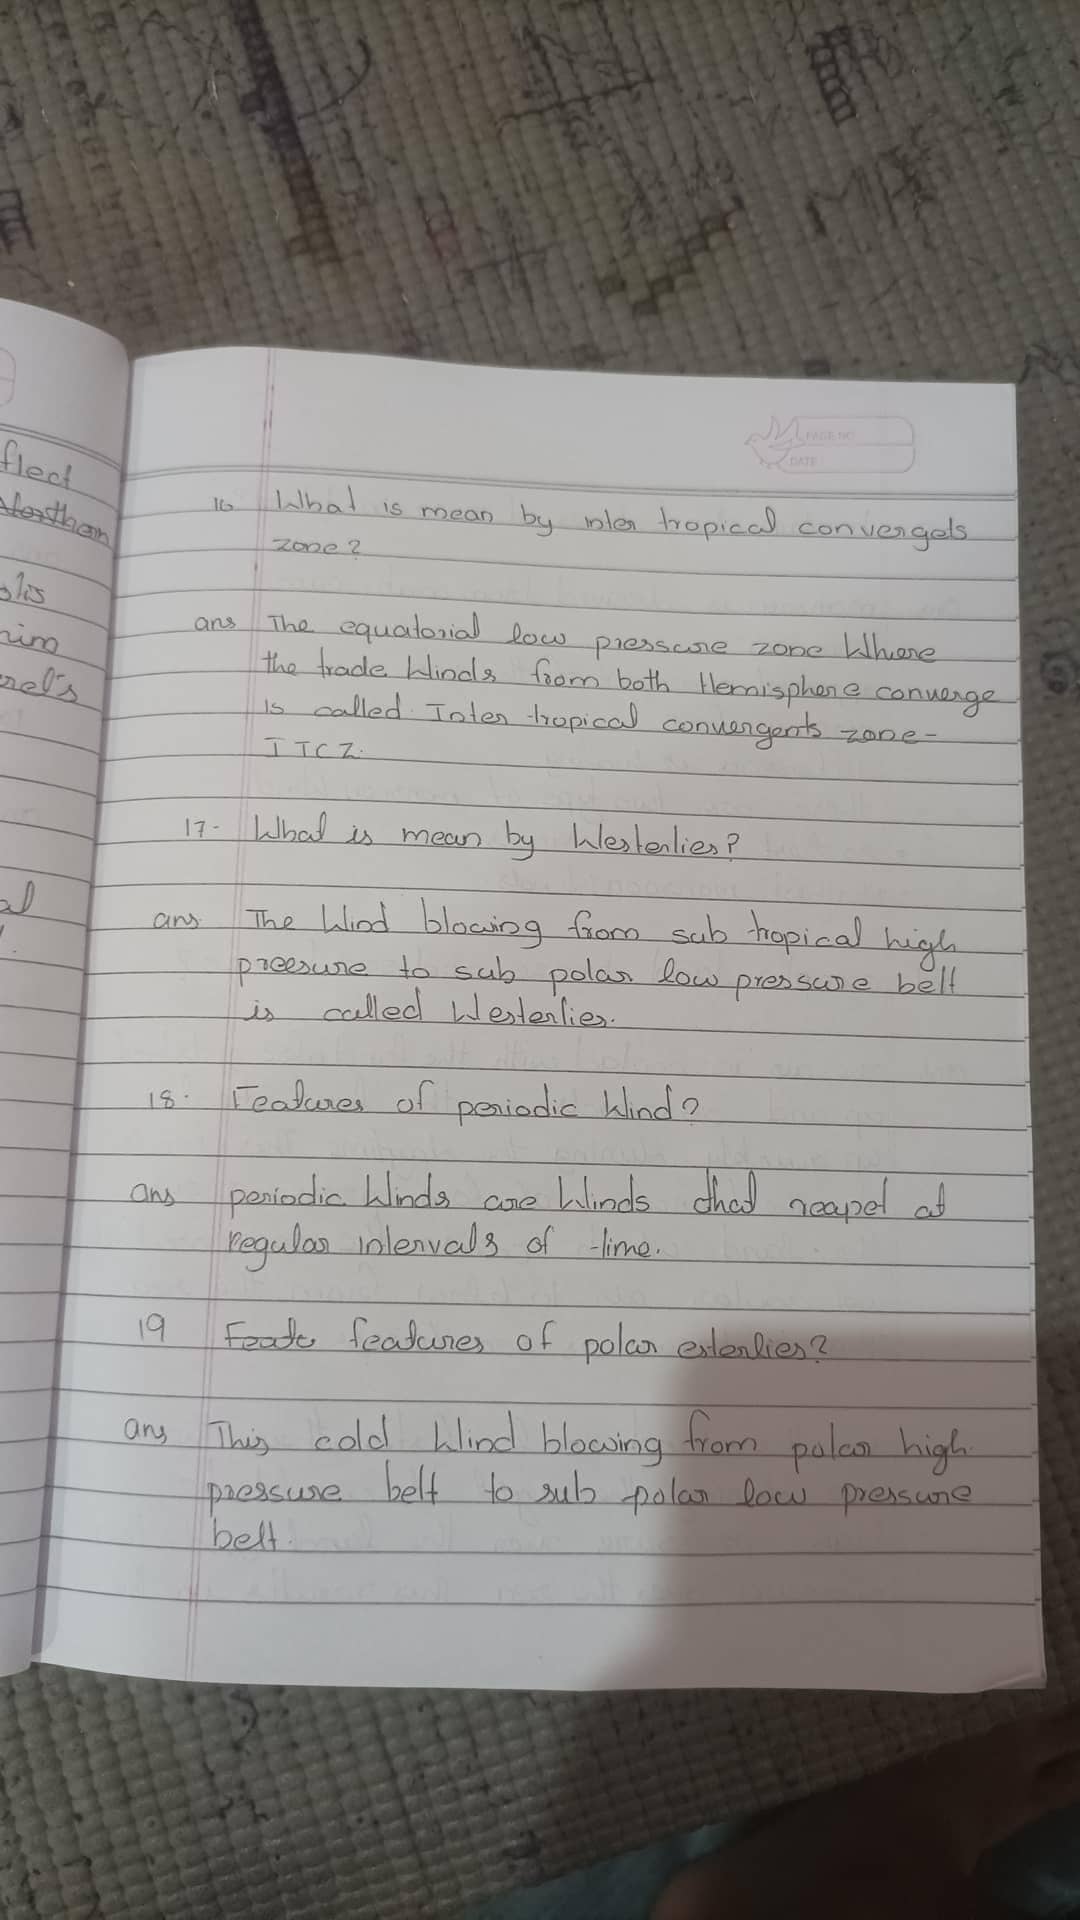 flect
Northon
nim
al
PAGE NO
DATE
16 What is mean by inter tropical convergels
zone?
ans The equatorial low pressure zone Where
the trade Winds from both Hemisphere converge
is called Inter tropical convergents zone-
ITCZ.
17- What is mean by Westerlies?
ans. The Wind blowing from sub tropical high
preesure to sub polar low pressure belt
is called Westerlies.
18. Features of periodic Wind?
ans periodic Winds are Winds that reapet at
regular intervals of time.
19 features of polar esterlies?
ans This cold Wind blowing from polar high
pressure belt to sub polar low pressure
belt.